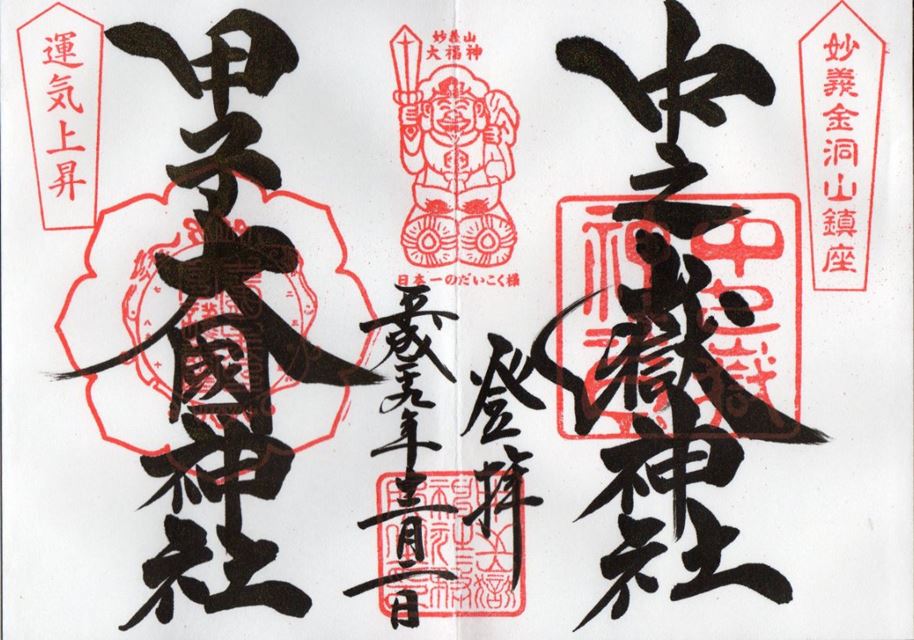 妙義金洞山鎮座
中之嶽神社
登拝
平成二十九年十二月二日
妙義山
大福神
日本一のだいこく様
甲子大國神社
運気上昇
中之嶽
神社